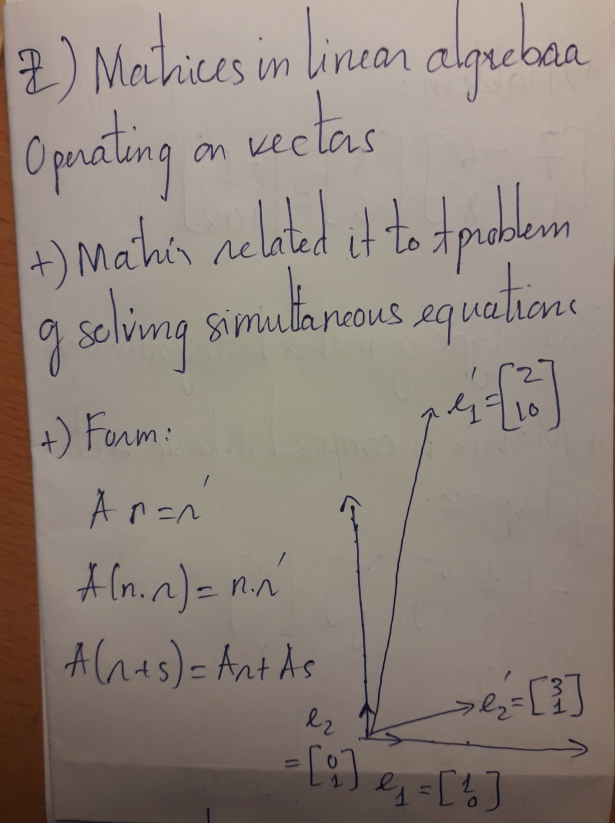 2) Matrices in linear algrebaa
Operating on vectors
+) Matrix related it to ≠ problem
g solving simultaneous equations
e₁' = [2 10]
+) Form:
A r = r'
A(n.r) = n.r'
A(r+s) = Ar + As
e₂' = [3 1]
e₂
= [0 1]
e₁ = [1 0]